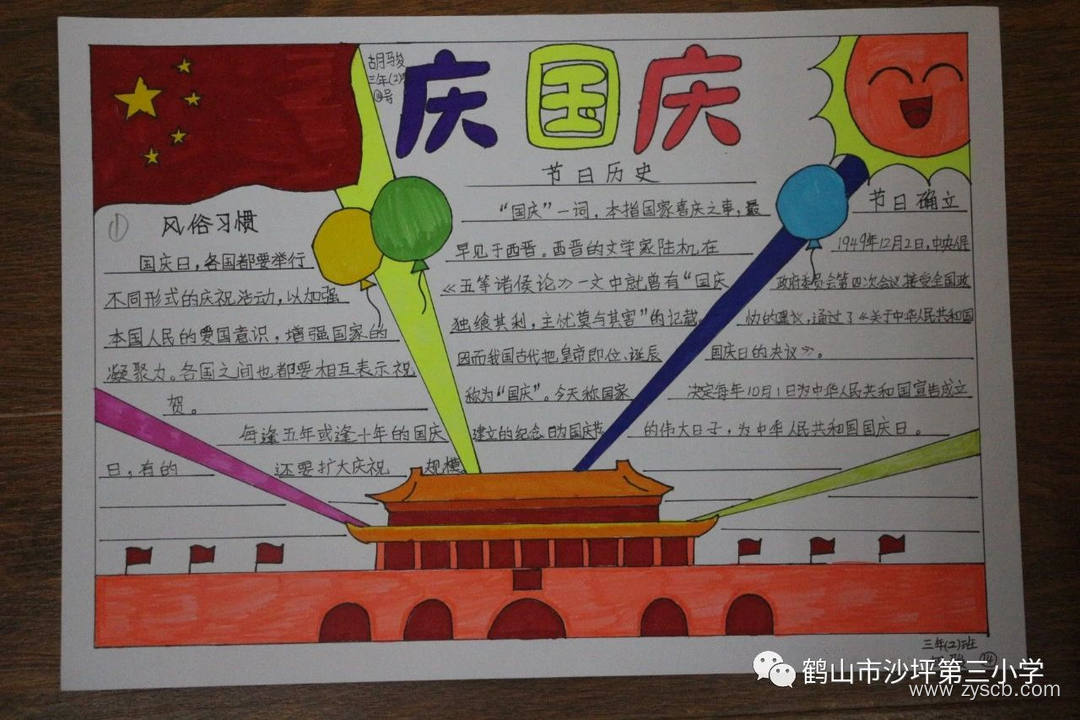 胡骏
三年(2)班
⑭号
庆国庆
节日历史
风俗习惯
国庆日，各国都要举行
不同形式的庆祝活动，以加强
本国人民的爱国意识，增强国家的
凝聚力。各国之间也都要相互表示祝
贺。
每逢五年或逢十年的国庆
日，有的 还要扩大庆祝 规模。
“国庆”一词，本指国家喜庆之事，最
早见于西晋。西晋的文学家陆机在
《五等诸侯论》一文中就曾有“国庆
独飨其利，主忧莫与其害”的记载，
因而我国古代把皇帝即位、诞辰
称为“国庆”。今天称国家
建立的纪念日为国庆节
节日确立
1949年12月2日，中央人民
政府委员会第四次会议接受全国政
协的建议，通过了《关于中华人民共和国
国庆日的决议》。
决定每年10月1日为中华人民共和国宣告成立
的伟大日子，为中华人民共和国国庆日。
三年(2)班
⑭
鹤山市沙坪第三小学
www.zyscb.com